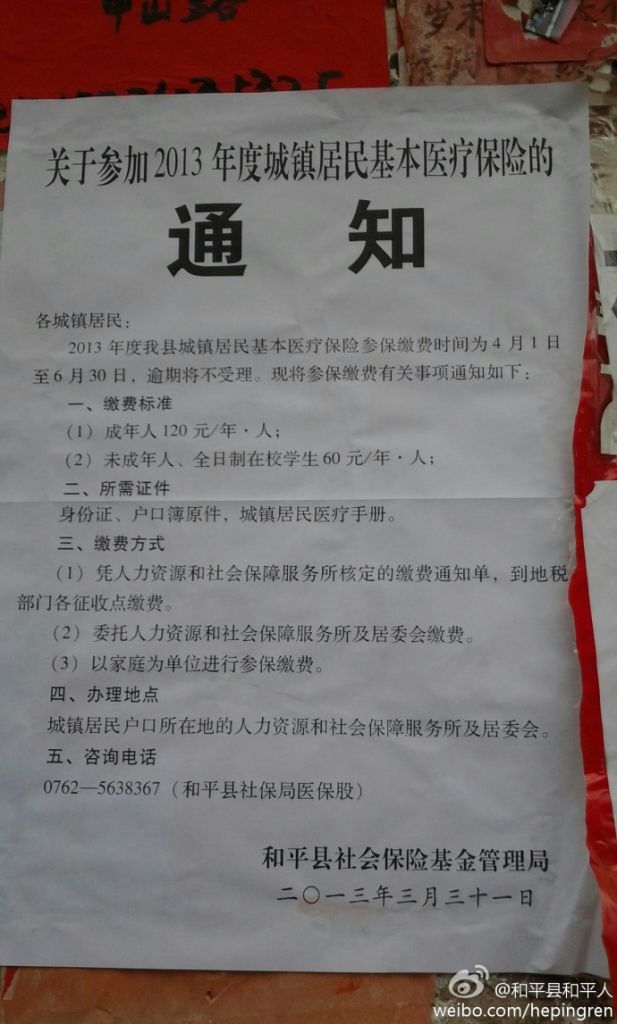 关于参加2013年度城镇居民基本医疗保险的
通 知
各城镇居民：
2013年度我县城镇居民基本医疗保险参保缴费时间为4月1日
至6月30日，逾期将不受理。现将参保缴费有关事项通知如下：
一、缴费标准
（1）成年人120元/年·人；
（2）未成年人、全日制在校学生60元/年·人；
二、所需证件
身份证、户口簿原件，城镇居民医疗手册。
三、缴费方式
（1）凭人力资源和社会保障服务所核定的缴费通知单，到地税
部门各征收点缴费。
（2）委托人力资源和社会保障服务所及居委会缴费。
（3）以家庭为单位进行参保缴费。
四、办理地点
城镇居民户口所在地的人力资源和社会保障服务所及居委会。
五、咨询电话
0762—5638367（和平县社保局医保股）
和平县社会保险基金管理局
二〇一三年三月三十一日
@和平县和平人
weibo.com/hepingren